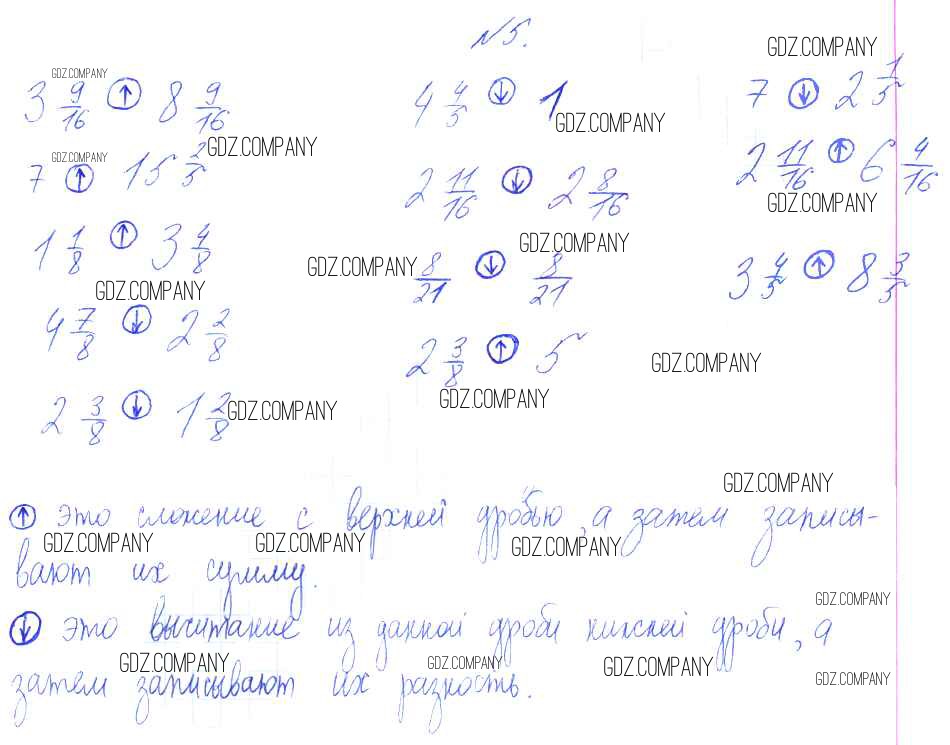 №5.
GDZ.COMPANY
GDZ.COMPANY
3 9/16 ↑ 8 9/16
4 4/5 ↓ 1
7 ↓ 2 1/5
GDZ.COMPANY
GDZ.COMPANY
GDZ.COMPANY
7 ↑ 15 2/5
2 11/16 ↓ 2 8/16
2 11/16 ↑ 6 4/16
GDZ.COMPANY
1 1/8 ↑ 3 4/8
GDZ.COMPANY
GDZ.COMPANY
8/21 ↓ 8/21
3 4/5 ↑ 8 3/5
GDZ.COMPANY
4 7/8 ↓ 2 2/8
2 3/8 ↑ 5
GDZ.COMPANY
GDZ.COMPANY
2 3/8 ↓ 1 2/8
GDZ.COMPANY
GDZ.COMPANY
↑ это сложение с верхней дробью, а затем записы-
GDZ.COMPANY GDZ.COMPANY GDZ.COMPANY
вают их сумму.
GDZ.COMPANY
↓ это вычитание из данной дроби нижней дроби, а
GDZ.COMPANY GDZ.COMPANY GDZ.COMPANY GDZ.COMPANY
затем записывают их разность.